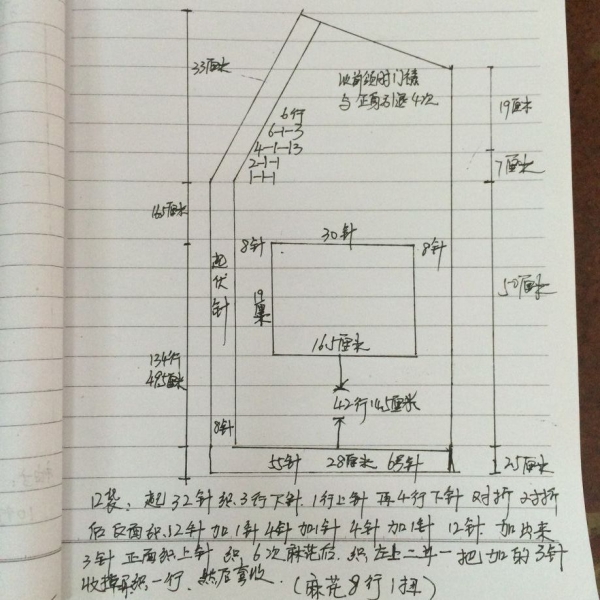 33厘米
6行
6-1-3
4-1-13
2-1-1
1-1-1
与正肩引退4次
19厘米
7厘米
16.5厘米
起伏针
8针
30针
8针
50厘米
16.5厘米
134行
49.5厘米
42行14.5厘米
8针
55针
28厘米
6号针
2.5厘米
口袋:起32针织3行下针.1行上针 再4行下针 对折 对折
后反面织12针加1针4针加1针4针加1针 12针.加出来
3针 正面织上针 织6次麻花后.织左上二并一把加的3针
收掉再织一行.然后套收.
(麻花8行1扭)